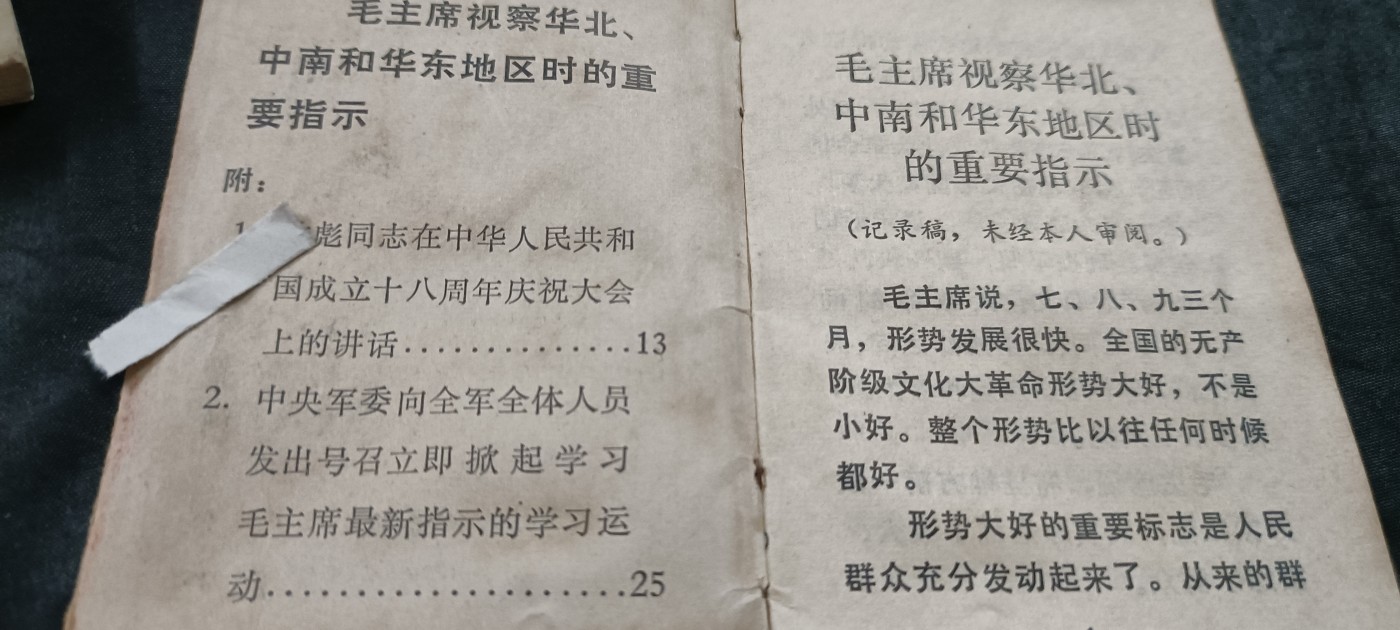 毛主席视察华北、
中南和华东地区时的重
要指示
附：
1.
彪同志在中华人民共和
国成立十八周年庆祝大会
上的讲话..............13
2. 中央军委向全军全体人员
发出号召立即掀起学习
毛主席最新指示的学习运
动......................25
毛主席视察华北、
中南和华东地区时
的重要指示
（记录稿，未经本人审阅。）
毛主席说，七、八、九三个
月，形势发展很快。全国的无产
阶级文化大革命形势大好，不是
小好。整个形势比以往任何时候
都好。
形势大好的重要标志是人民
群众充分发动起来了。从来的群